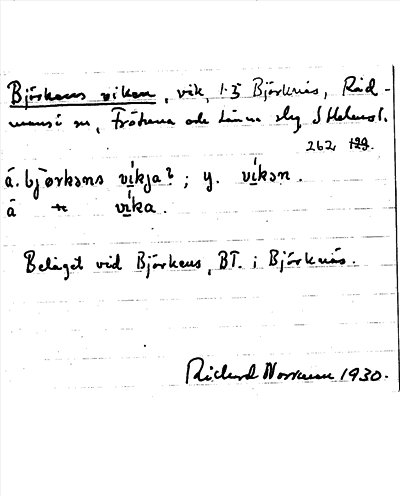 Björkens viken, vik, 1-5 Björknäs, Råd-
mansö sn, Frötuna och Länna slg Sthlms l.
262 129.
ä. bjørkəns vikja? ; y. vikən.
ä " vika.
Beläget vid Björkens, BT. i Björknäs.
Richard Norrman 1930.